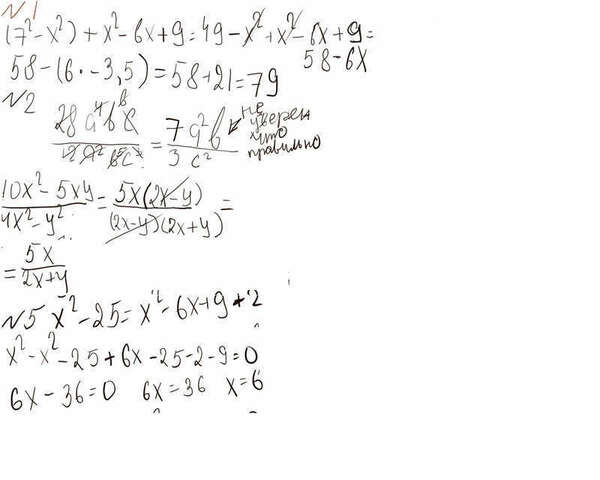 №1
(7²-x²)+x²-6x+9=49-x²+x²-6x+9=
58-6x
58-(6·-3,5)=58+21=79
№2
28a⁴b⁶c / 12a²b⁵c³ = 7a²b / 3c² не уверен что правильно
10x²-5xy / 4x²-y² = 5x(2x-y) / (2x-y)(2x+y) =
= 5x / 2x+y
№5 x²-25=x²-6x+9+2
x²-x²-25+6x-25-2-9=0
6x-36=0 6x=36 x=6